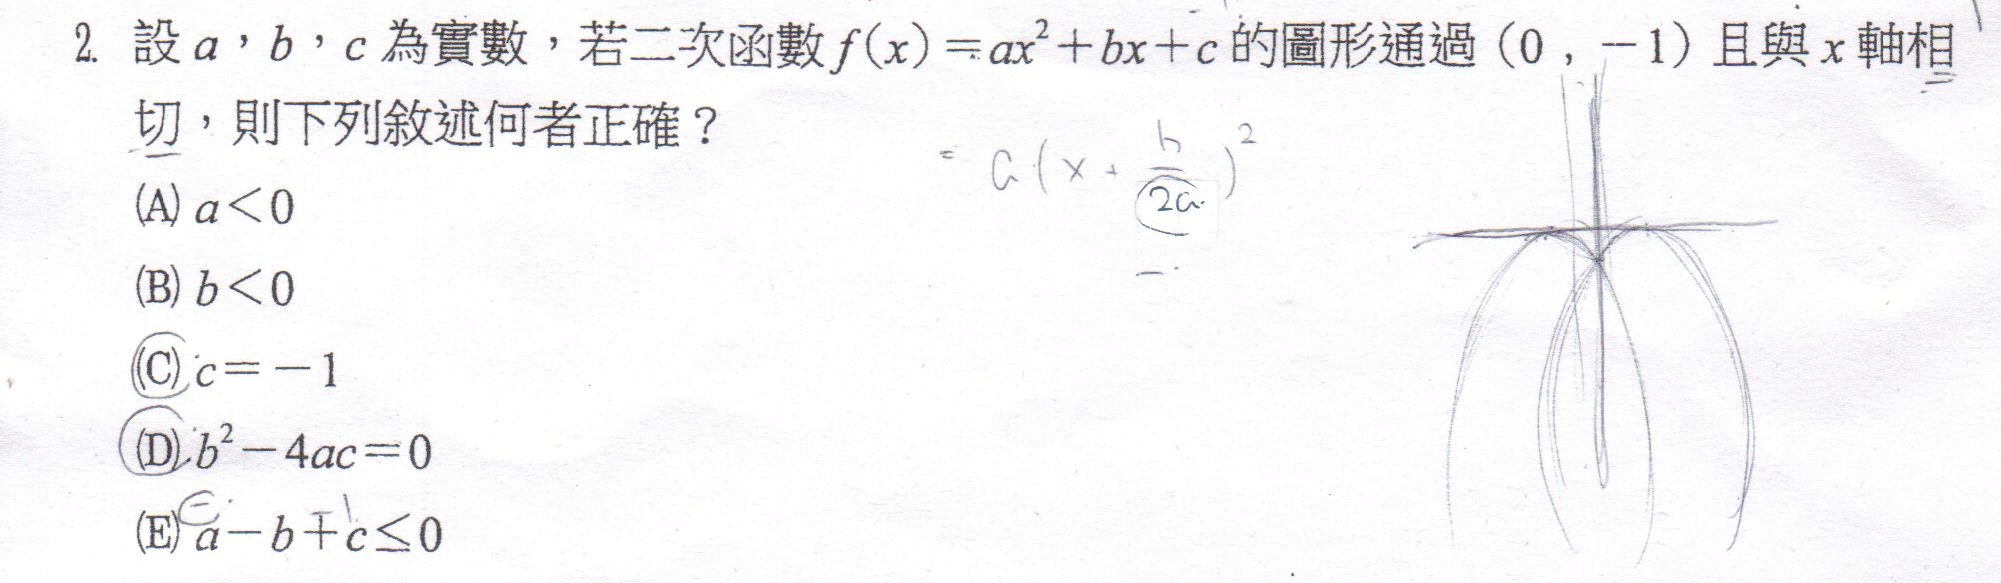 2. 設 a，b，c 為實數，若二次函數 f(x)＝ax²＋bx＋c 的圖形通過（0，－1）且與 x 軸相
切，則下列敘述何者正確？
= a(x + b/2a)²
(A) a＜0
(B) b＜0
(C) c＝－1
(D) b²－4ac＝0
(E) a－b＋c≤0